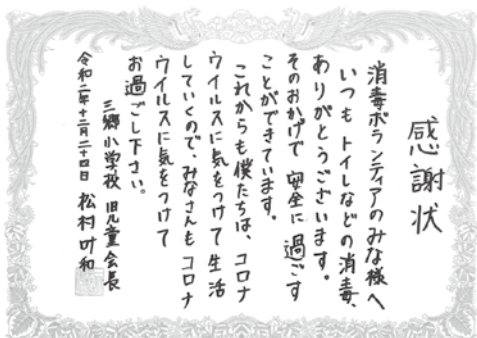 感謝状
消毒ボランティアのみな様へ
いつもトイレなどの消毒、
ありがとうございます。
そのおかげで安全に過ごす
ことができています。
これからも僕たちは、コロナ
ウイルスに気をつけて生活
していくので、みなさんもコロナ
ウイルスに気をつけて
お過ごし下さい。
三郷小学校 児童会長
令和二年十二月二十四日 松村叶和